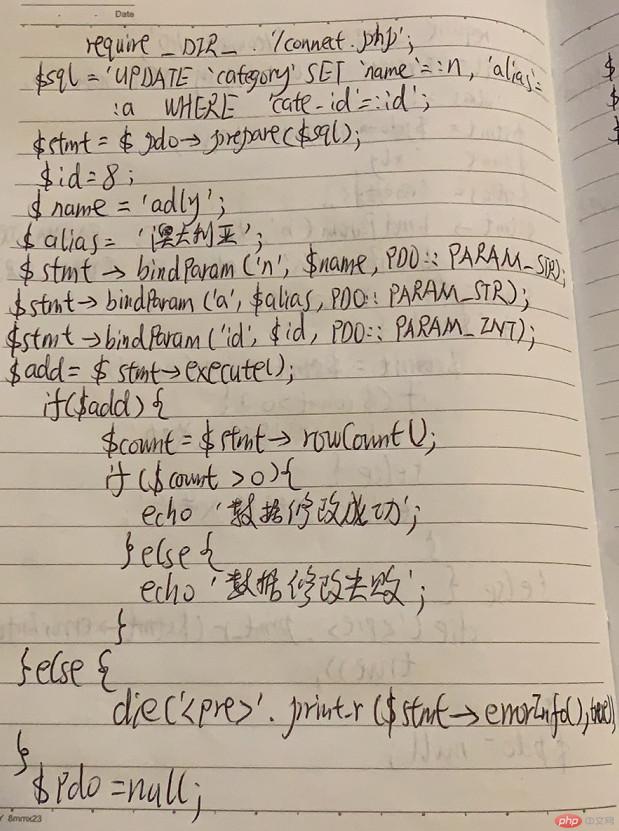 Date
require _DIR_ . '/connect.php';
$sql = 'UPDATE `category` SET `name`=:n, `alias`=
:a WHERE `cate-id`=:id';
$stmt = $pdo→prepare($sql);
$id=8;
$name = 'adly';
$alias= '澳大利亚';
$stmt → bindParam('n', $name, PDO:: PARAM_STR);
$stmt→bindParam('a', $alias, PDO:: PARAM_STR);
$stmt→bindParam('id', $id, PDO:: PARAM_INT);
$add= $stmt→execute();
if($add) {
$count = $stmt→ rowCount();
if ($count >0){
echo '数据修改成功';
}else{
echo '数据修改失败';
}
}else {
die('<pre>'. print_r($stmt→errorInfo(),true))
}
$pdo=null;
8mmx23
php 中文网